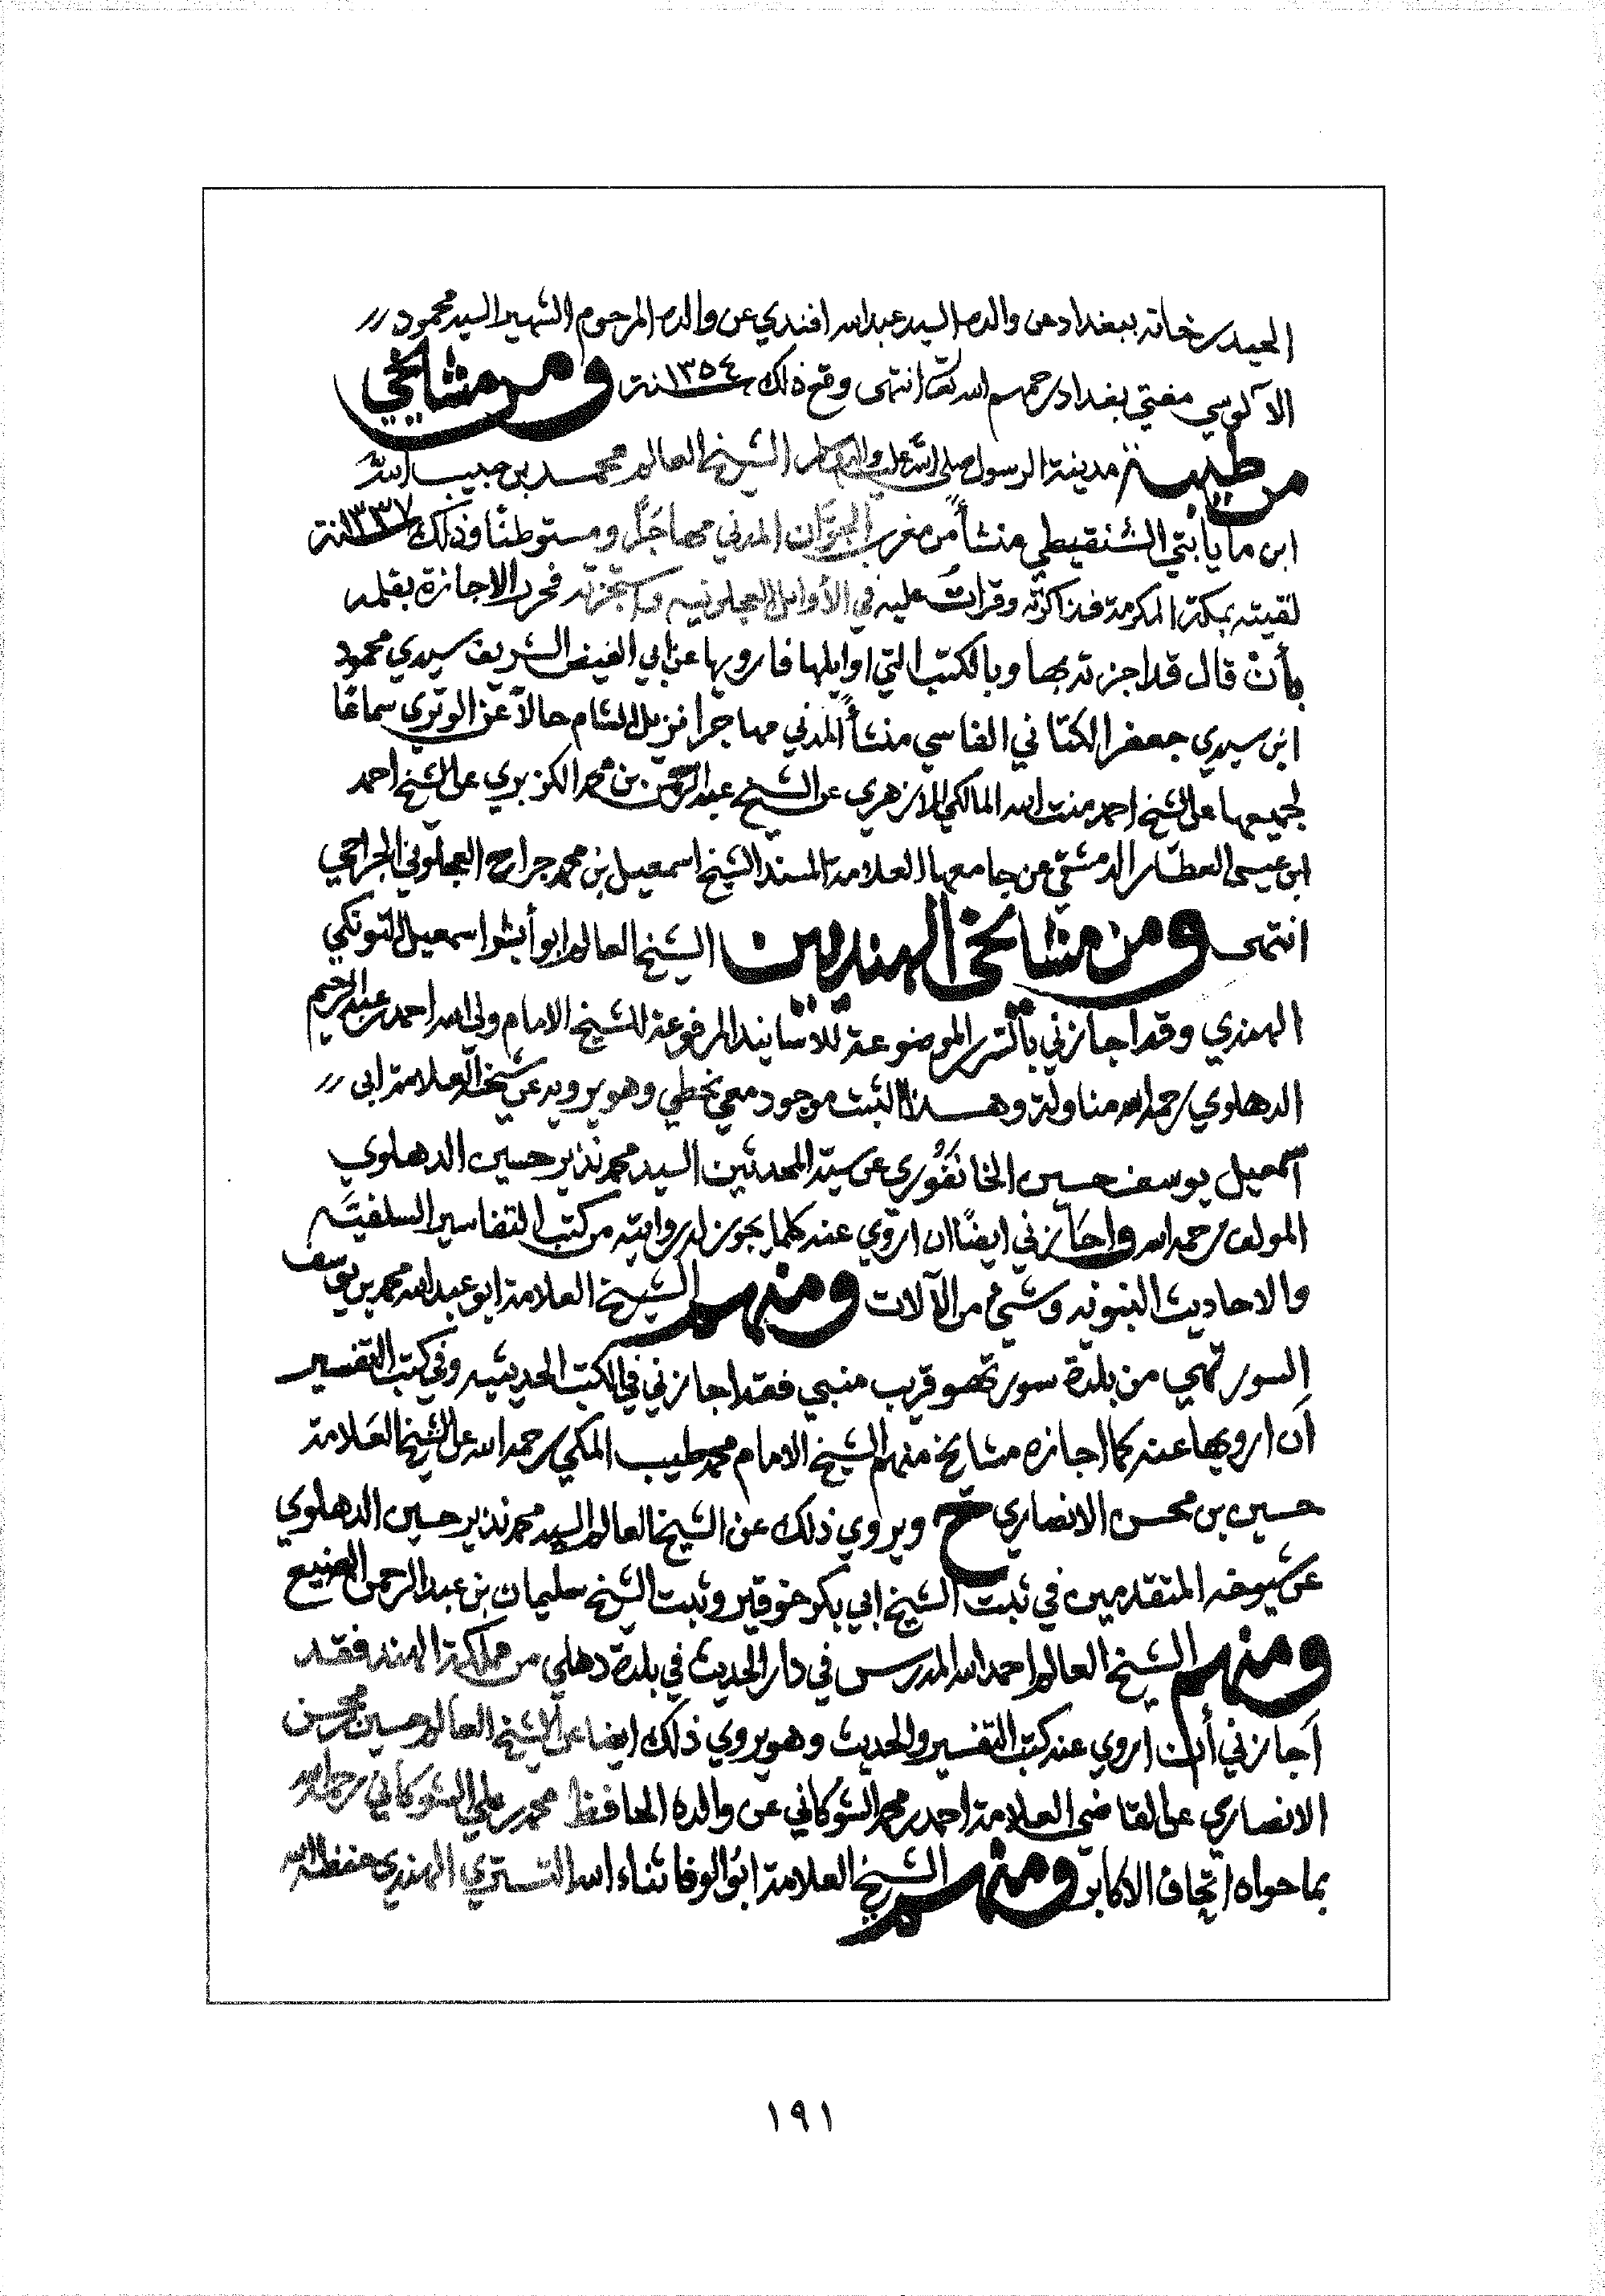 الحيدرخانه ببغداد عن والده السيد عبدالله افندي عن والده المرحوم الشهير السيد محمود
الآلوسي مفتي بغداد رحمهم الله تعا انتهى وقع ذلك سنة ١٣٥٤ ومن مشايخي
من طيبة مدينة الرسول صلى الله عليه والـه الشيخ العالم محمد بن حبيب الله
ابن مايابتي الشنقيطي منشأً من مغرب المدني مهاجرًا ومستوطنًا وذلك سنة ١٣٣٧
لقيته بمكة المكرمة فذاكرته وقرات عليه في الأوايل العجلونيه واستجزته فحرر الاجازة بقلمه
بأن قال قد اجزته بها وبالكتب التي اوايلها فارويها عن ابي الفيض الشريف سيدي محمود
ابن سيدي جعفر الكتاني الفاسي منشأً المدني مهاجرا نزيل الشام حالاً عن الوتري سماعًا
لجميعها عن الشيخ احمد منت الله المالكي الازهري عن الشيخ عبدالرحمن بن محمد الكزبري عن الشيخ احمد
ابن عيسى العطار الدمشقي عن جامعها العلامة المسند الشيخ اسمعيل بن محمد جراح العجلوني الجراحي
انتهى ومن مشايخي الهنديين الشيخ العالم ابو اسمعيل التونكي
الهندي وقد اجازني الموضوعة للاسانيد المرفوعة للشيخ الامام ولي الله احمد بن عبدالرحيم
الدهلوي رحمه الله مناولة وهذا الثبت موجود معي بخطي وهو يرويه عن شيخه العلامة ابى
اسمعيل يوسف حسين الخانفوري عن سيد المحدثين السيد محمد نذير حسين الدهلوي
المولف رحمه الله واجازني ايضًا ان اروي عنه كلما يجوز له روايته من كتب التفاسير السلفيّه
والاحاديث النبويه وشيئ من الآلات ومنهم الشيخ العلامة ابو عبدالله محمد بن يوسف
السورتهي من بلدة سورتهو قريب منبي فقد اجازني في الكتب الحديثيه وفي كتب التفسير
أن ارويها عنه كما اجازه مشايخ منهم الشيخ الامام محمد طيب المكي رحمه الله عن الشيخ العلامة
حسين بن محسن الانصاري ح ويروي ذلك عن الشيخ العالم السيد محمد نذير حسين الدهلوي
عن شيوخه المتقدمين في ثبت الشيخ ابي بكر خوقير وثبت الشيخ سليمان بن عبدالرحمن الصنيع
ومنهم الشيخ العالم احمد الله المدرس في دار الحديث في بلدة دهلي من مملكة الهند فقد
اجازني أن اروي عنه كتب التفسير والحديث وهو يروي ذلك ايضا عن الشيخ العالم حسين بن محسن
الانصاري عن القاضى العلامة احمد بن محمد الشوكاني عن والده الحافظ محمد بن علي الشوكاني رحمه الله
بما حواه اتحاف الاكابر ومنهم الشيخ العلامة ابو الوفا ثناء الله التستري الهندي حفظه الله
١٩١